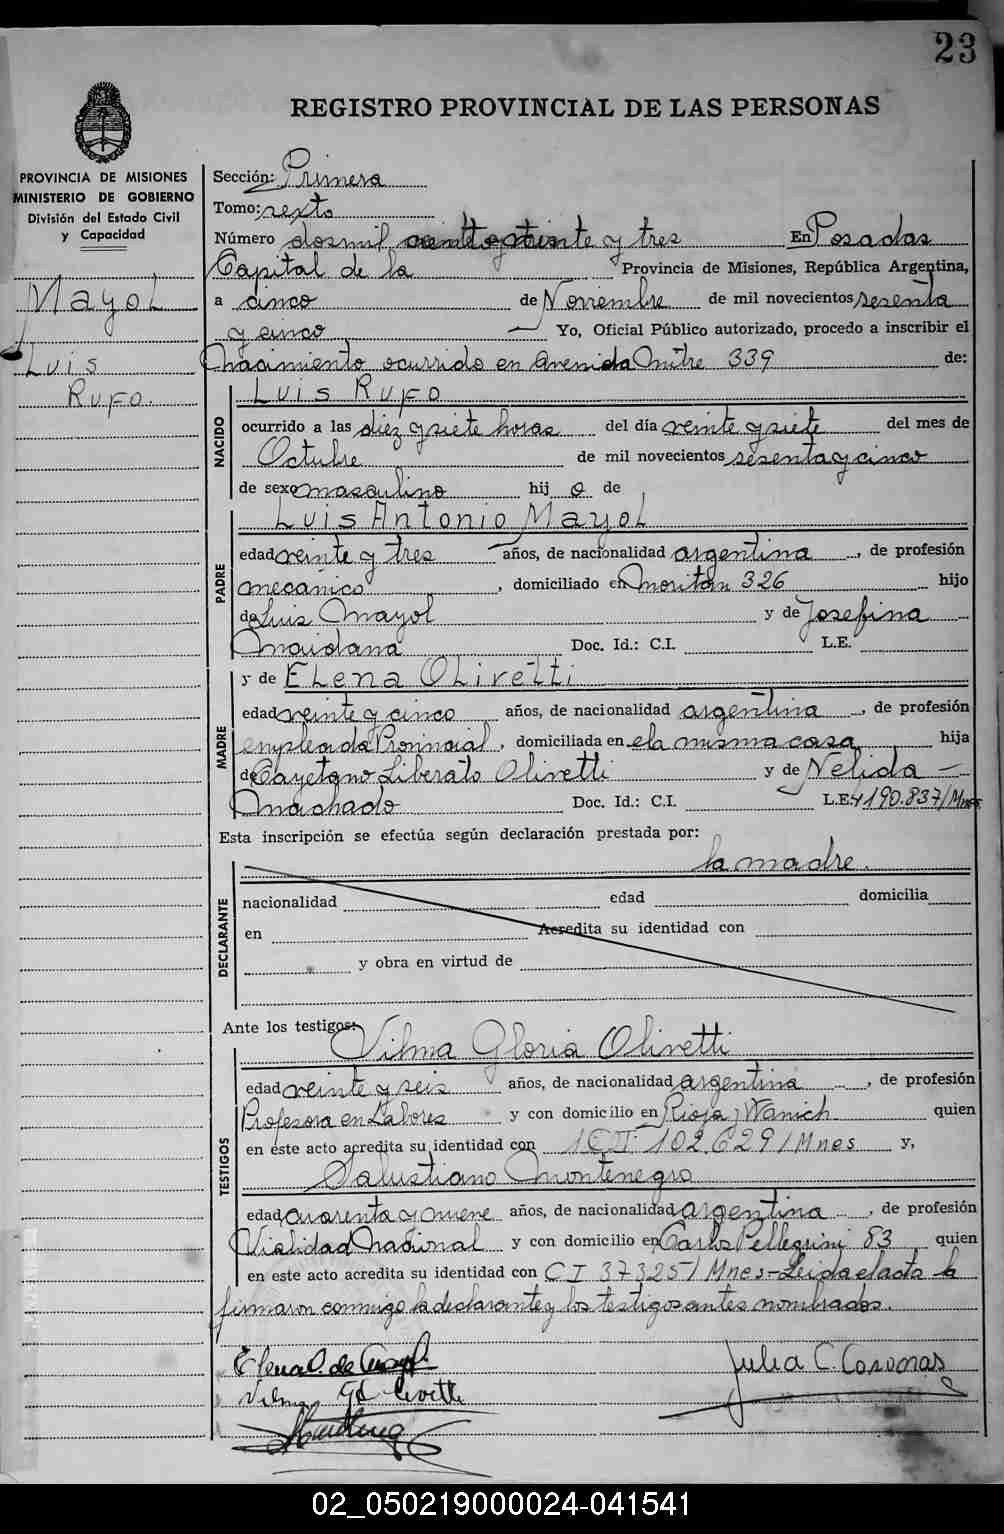 23
REGISTRO PROVINCIAL DE LAS PERSONAS
PROVINCIA DE MISIONES
MINISTERIO DE GOBIERNO
División del Estado Civil
y Capacidad
Mayol
Luis
Rufo.
Sección: Primera
Tomo: sexto
Número dosmil treinta y tres En Posadas
Capital de la Provincia de Misiones, República Argentina,
a cinco de Noviembre de mil novecientos sesenta
y cinco Yo, Oficial Público autorizado, procedo a inscribir el
Nacimiento ocurrido en Avenida Mitre 339 de:
NACIDO
Luis Rufo
ocurrido a las diez y siete horas del día veinte y siete del mes de
Octubre de mil novecientos sesenta y cinco
de sexo masculino hij o de
PADRE
Luis Antonio Mayol
edad veinte y tres años, de nacionalidad argentina, de profesión
mecánico, domiciliado en 326 hijo
de Luis Mayol y de Josefina
Maidana Doc. Id.: C.I. L.E.
MADRE
y de Elena Olivetti
edad veinte y cinco años, de nacionalidad argentina, de profesión
empleada Provincial, domiciliada en la misma casa hija
de Cayetano Liberato Olivetti y de Nelida -
Machado Doc. Id.: C.I. L.E. 4190.837/Mnes
Esta inscripción se efectúa según declaración prestada por:
la madre.
DECLARANTE
nacionalidad edad domicilia
en Acredita su identidad con
y obra en virtud de
Ante los testigos: Vilma Gloria Olivetti
TESTIGOS
edad veinte y seis años, de nacionalidad argentina, de profesión
Profesora en Labores y con domicilio en Rioja y Wanich quien
en este acto acredita su identidad con 102.629/Mnes y,
Salustiano Montenegro
edad cuarenta y nueve años, de nacionalidad argentina, de profesión
Vialidad Nacional y con domicilio en Carlos Pellegrini 83 quien
en este acto acredita su identidad con CI 37325/Mnes - Leida el acta la
firmaron conmigo la declarante y los testigos antes nombrados.
Elena O. de Mayol
Julia C. Coronas
Vilma G. Olivetti
02_050219000024-041541